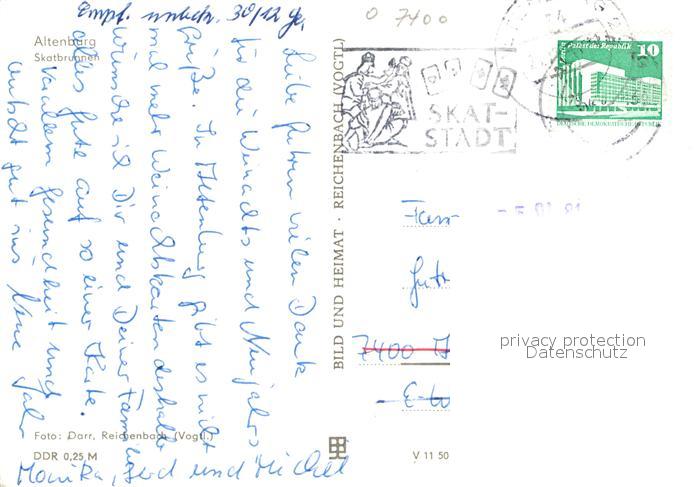 Empf. unbek. 30/12 Ge.
0 7400
Altenburg
Skatbrunnen
Liebe Jutr vielen Dank
für die Weinachts und Neujahrs
Grüße. In Altenburg gibt es nicht
mal mehr Weinachtskarten deshalb
wünsche ich Dir und Deiner Familie
alles Gute auf so einer Karte.
Vor allem Gesundheit und
rutscht gut ins Neue Jahr
Monika, Gerd und Michel
Foto: Darr, Reichenbach (Vogtl.)
DDR 0,25 M
V 11 50
BILD UND HEIMAT · REICHENBACH (VOGTL)
SKAT-
STADT
Palast der Republik 10
DEUTSCHE DEMOKRATISCHE REPUBLIK
Fam
Jutr
7400
privacy protection
Datenschutz